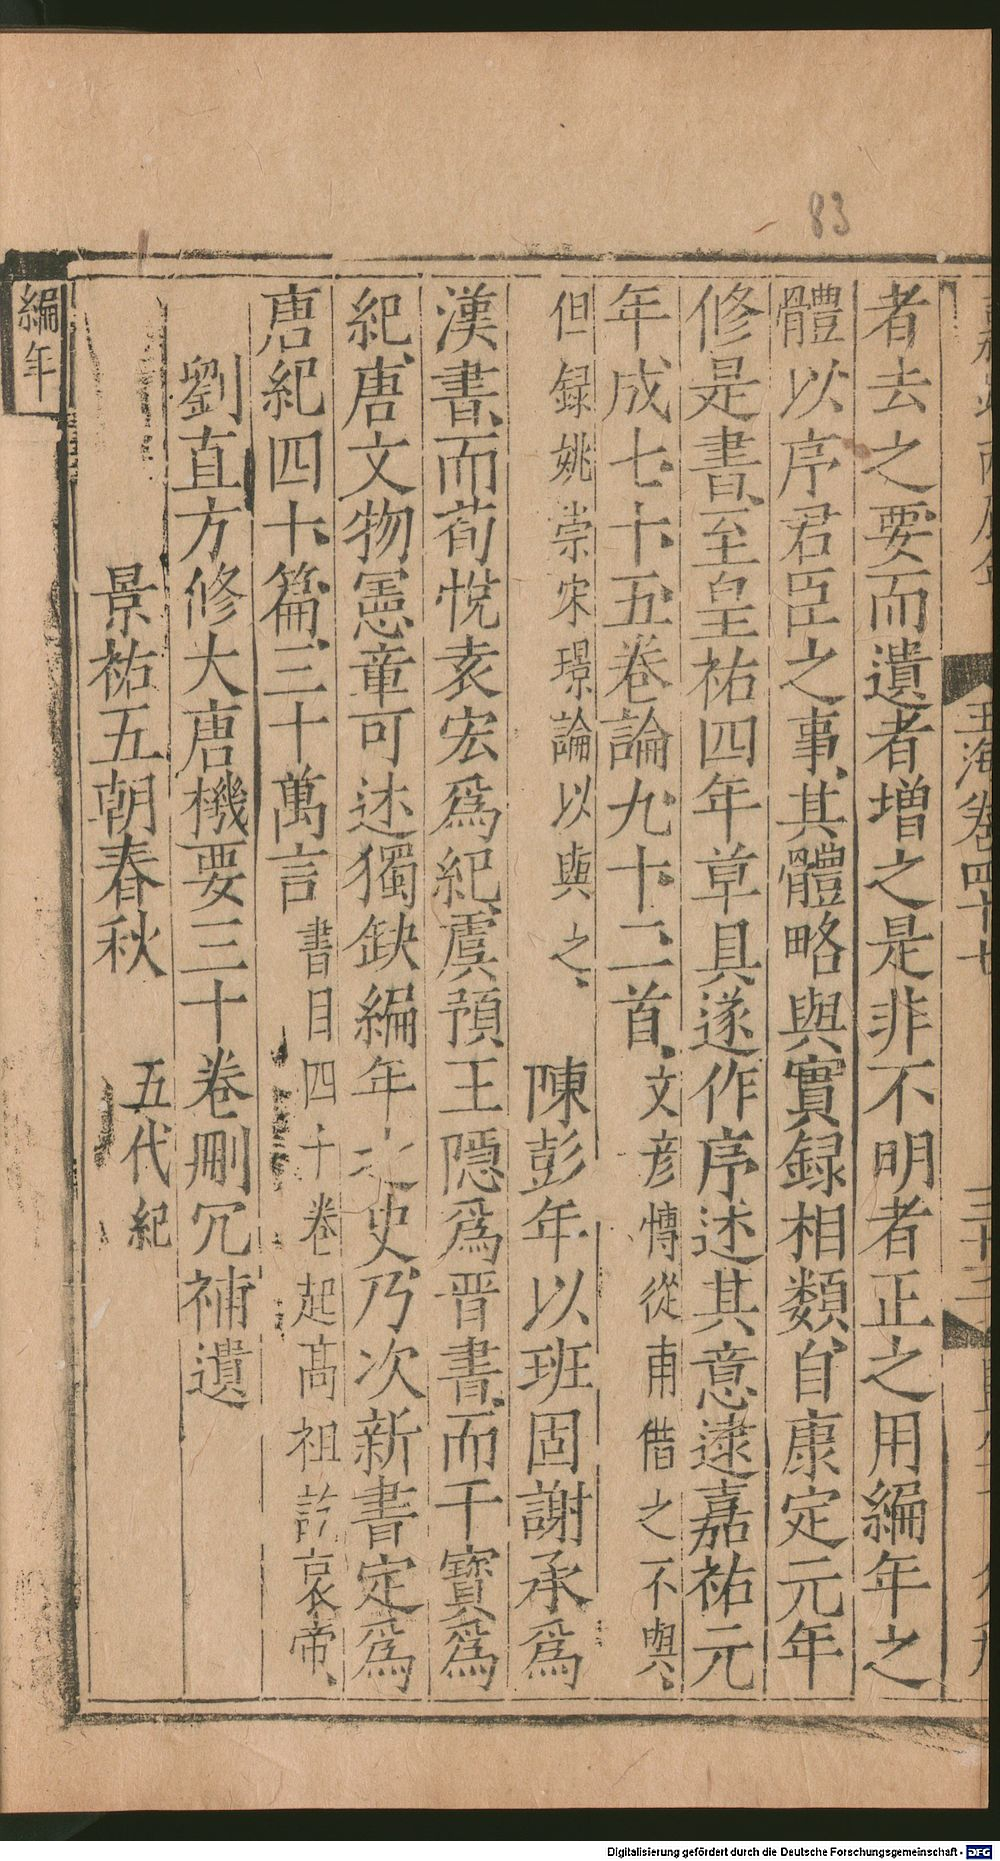 83
玉海卷四十七
者去之要而遺者增之是非不明者正之用編年之
體以序君臣之事其體略與實録相類自康定元年
修是書至皇祐四年草具遂作序述其意逮嘉祐元
年成七十五卷論九十二首文彦愽從甫借之不與
但録姚崇宋璟論以與之 陳彭年以班固謝承爲
漢書而荀恱袁宏爲紀虞預王隱爲晋書而干寳爲
紀唐文物憲章可述獨缺編年之史乃次新書定爲
唐紀四十篇三十萬言書目四十卷起髙祖訖哀帝
劉直方修大唐機要三十卷刪冗補遺
景祐五朝春秋 五代紀
編年
Digitalisierung gefördert durch die Deutsche Forschungsgemeinschaft - DFG